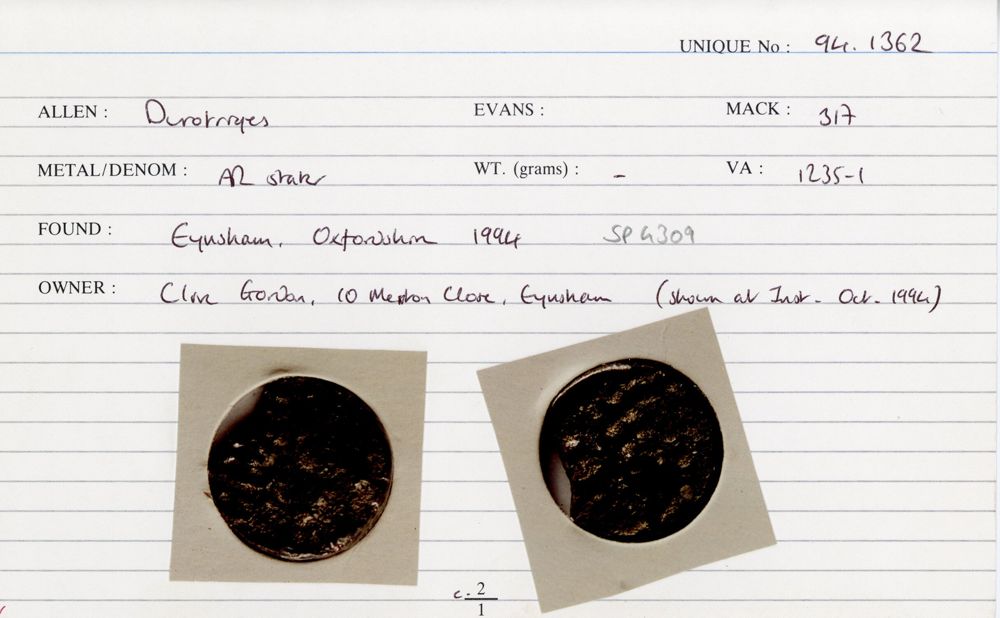 UNIQUE No : 94. 1362
ALLEN : Durotriges EVANS : MACK : 317
METAL/DENOM : AR stater WT. (grams) : - VA : 1235-1
FOUND : Eynsham, Oxfordshire 1994 SP 4309
OWNER : Clive Gordon, 10 Merton Close, Eynsham (shown at Inst. Oct. 1994)
c. 2
1